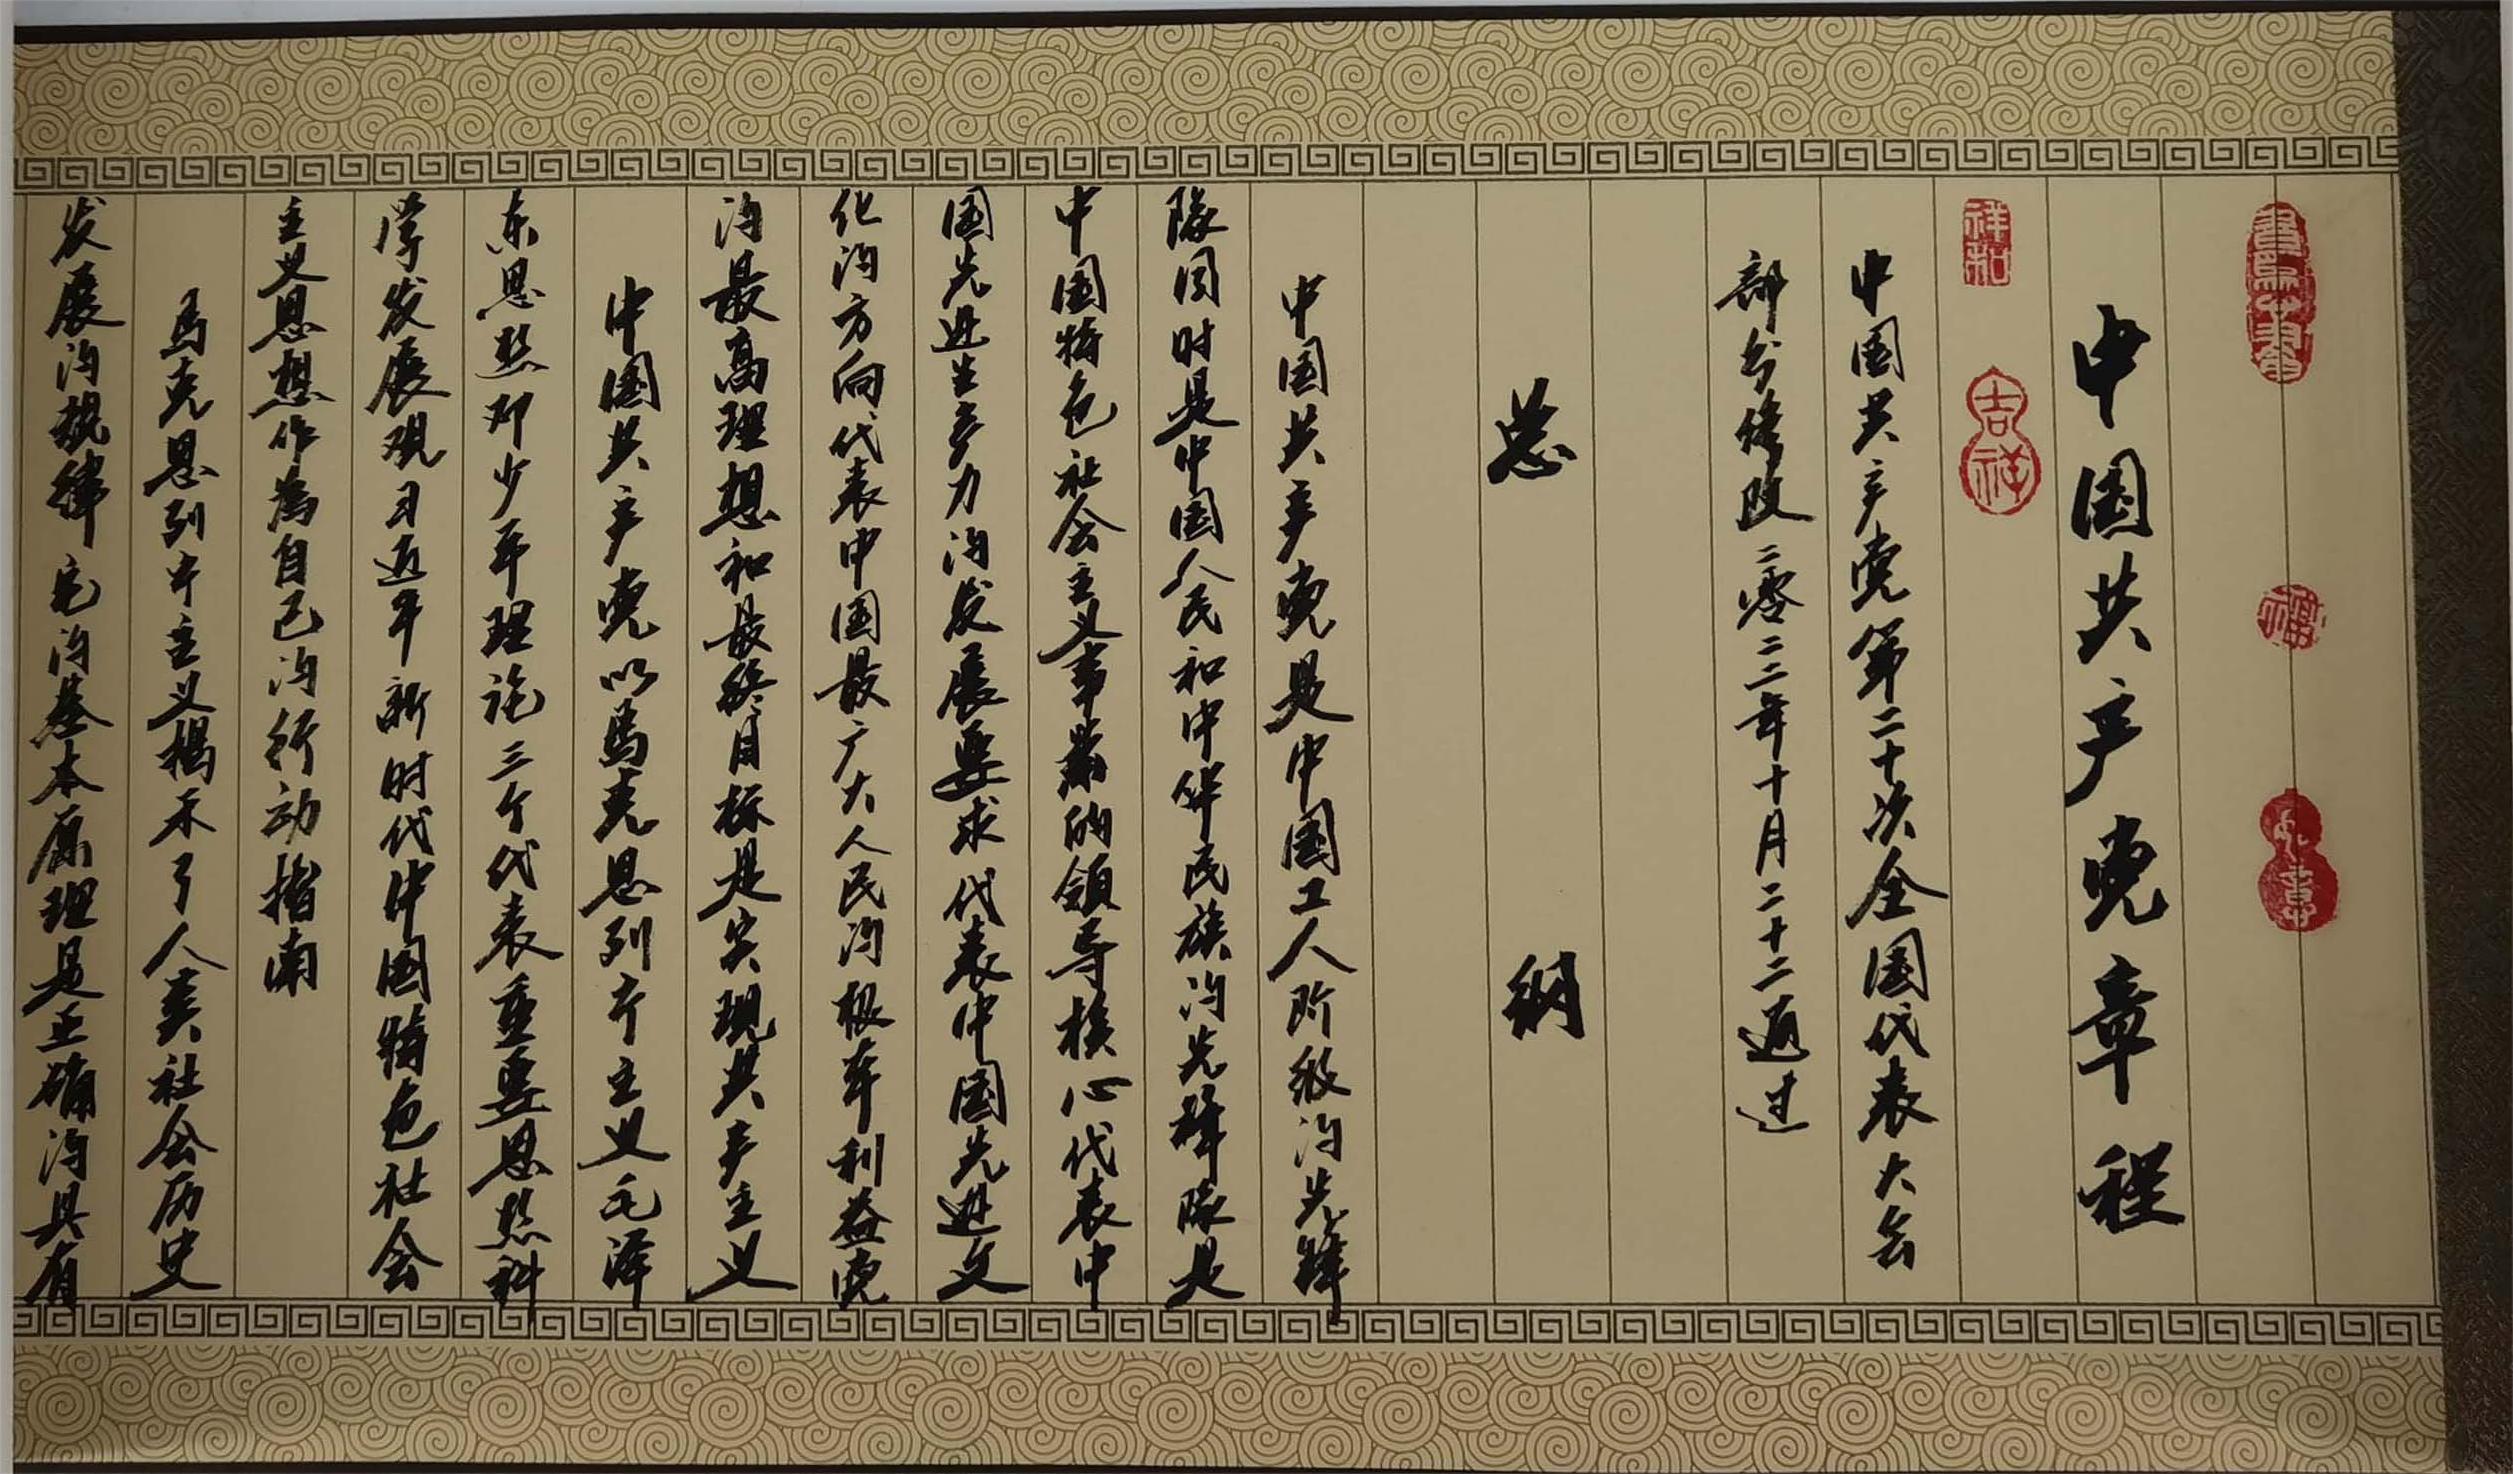 中国共产党章程
祥和
吉祥
福
中国共产党第二十次全国代表大会
部分修改二零二二年十月二十二通过
总纲
中国共产党是中国工人阶级的先锋
队同时是中国人民和中华民族的先锋队是
中国特色社会主义事业的领导核心代表中
国先进生产力的发展要求代表中国先进文
化的方向代表中国最广大人民的根本利益党
的最高理想和最终目标是实现共产主义
中国共产党以马克思列宁主义毛泽
东思想邓小平理论三个代表重要思想科
学发展观习近平新时代中国特色社会
主义思想作为自己的行动指南
马克思列宁主义揭示了人类社会历史
发展的规律它的基本原理是正确的具有